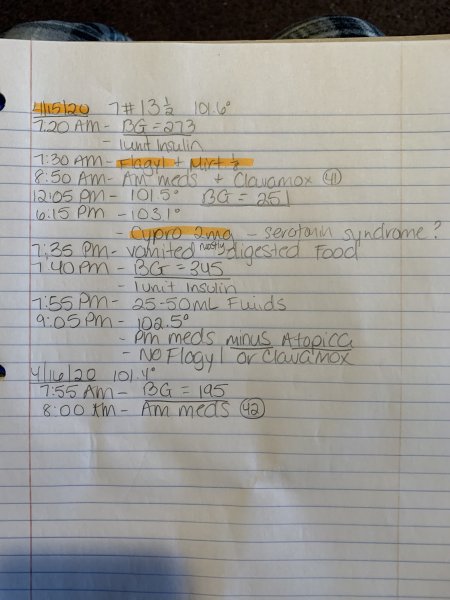 4/15/20 7# 13 1/2 101.6°
7:20 AM - BG = 273
- 1unit Insulin
7:30 AM - Flagyl + Mirt. 1/2
8:50 AM - AM meds + Clavamox (41)
12:05 PM - 101.5° BG = 251
6:15 PM - 103.1°
- Cypro 2mg - serotonin syndrome?
7:35 PM - vomited mostly digested Food
7:40 PM - BG = 345
- 1unit Insulin
7:55 PM - 25-50mL Fluids
9:05 PM - 102.5°
- PM meds minus Atopica
- NO Flagyl or Clavamox
4/16/20 101.4°
7:55 AM - BG = 195
8:00 AM - AM meds (42)